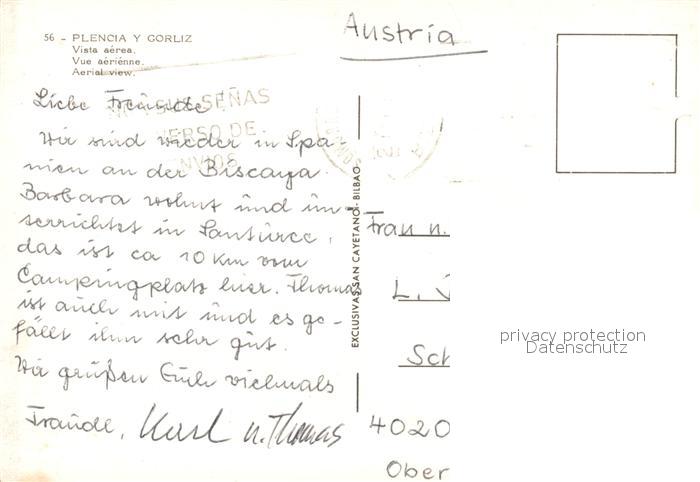 56 - PLENCIA Y GORLIZ
Vista aérea.
Vue aériénne.
Aerial view.
Austria
SUS SEÑAS
VERSO DE
ENVIOS
Liebe Freunde!
Wir sind wieder in Spa-
nien an der Biscaya.
Barbara wohnt und un-
terrichtet in Santurce,
das ist ca 10 km vom
Campingplatz hier. Thomas
ist auch mit und es ge-
fällt ihm sehr gut.
Wir grüßen Euch vielmals
Traudl, Karl u. Thomas
EXCLUSIVAS SAN CAYETANO - BILBAO
Frau u.
L.
Sch
4020
Ober
privacy protection
Datenschutz